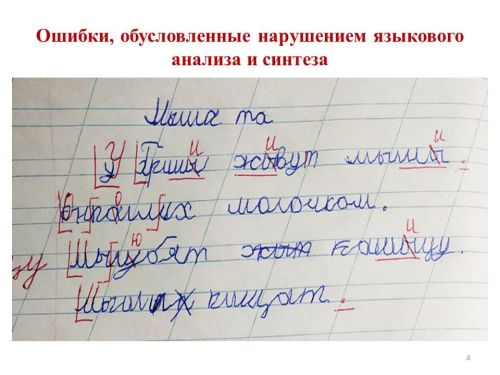 Ошибки, обусловленные нарушением языкового
анализа и синтеза
Мыша та
у Гришы живут мышы.
Онпоилих молочком.
Мылубят кашыцу.
Мышы их пищат.
4